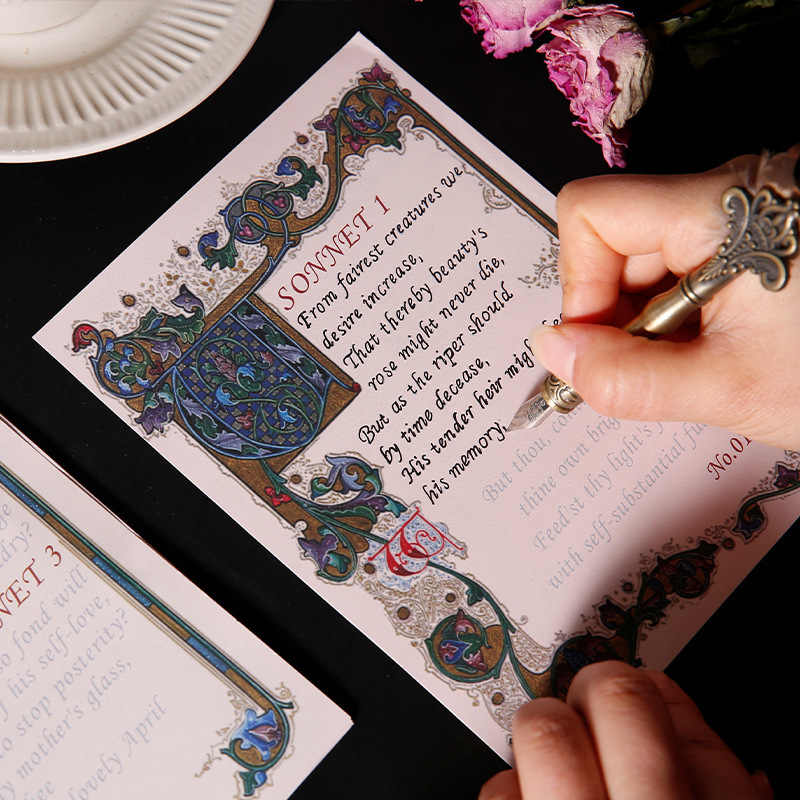 SONNET 1
From fairest creatures we
desire increase,
That thereby beauty's
rose might never die,
But as the riper should
by time decease,
His tender heir might
his memory.
But thou,
thine own
Feed'st thy light's
with self-substantial
No.01
NET 3
fond will
his self-love,
to stop posterity?
mother's glass,
lovely April